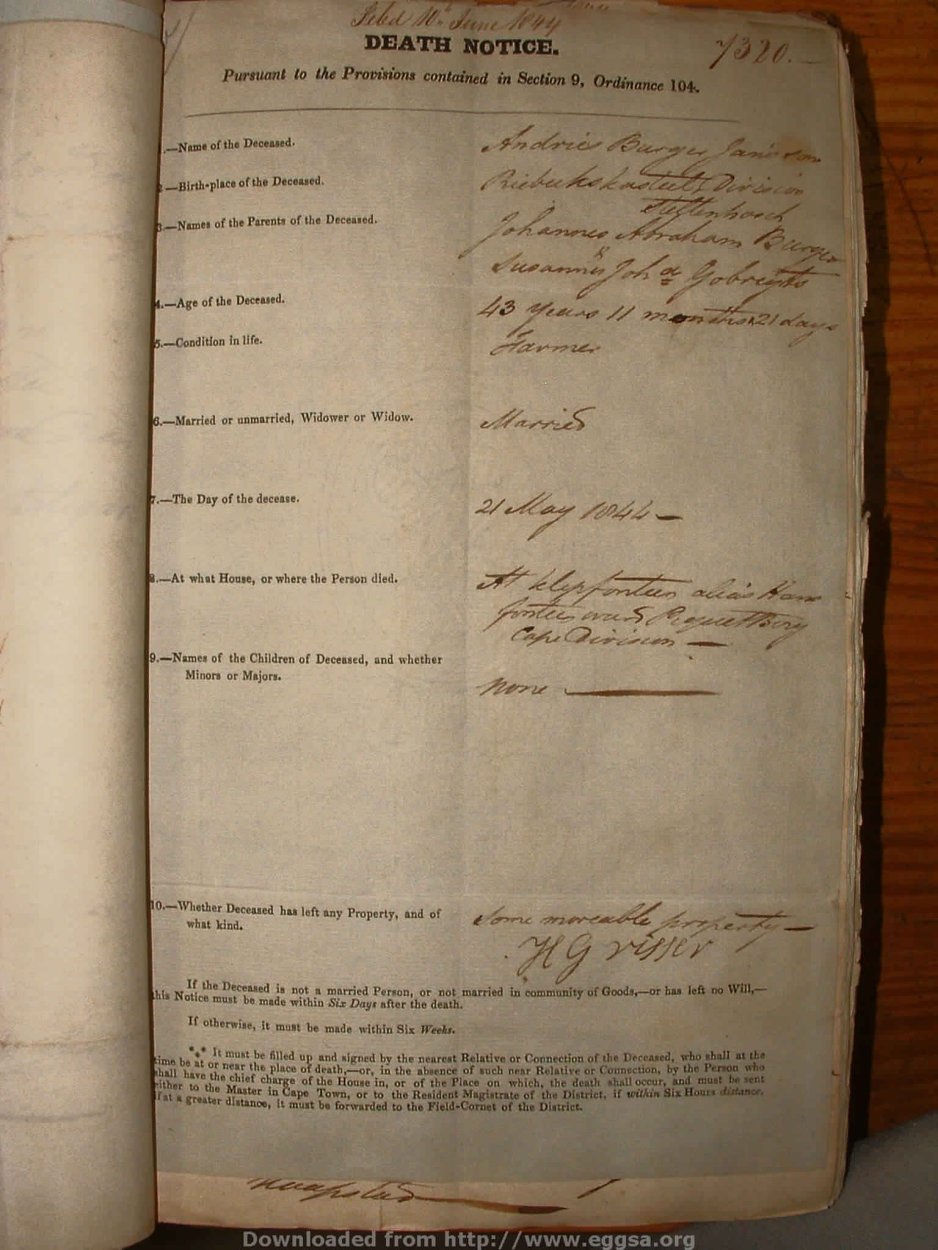 Filed 10th June 1844
7320.
DEATH NOTICE.
Pursuant to the Provisions contained in Section 9, Ordinance 104.
1.—Name of the Deceased.
Andries Burger Jans son
2.—Birth-place of the Deceased.
Riebieks kasteel, Division
3.—Names of the Parents of the Deceased.
Johannes Abraham Burger
&
Susanna Joh
4.—Age of the Deceased.
43 years 11 months & 21 days
5.—Condition in life.
Farmer
6.—Married or unmarried, Widower or Widow.
Married
7.—The Day of the decease.
21 May 1844 —
8.—At what House, or where the Person died.
At klipfontein alias
fontein ward
Cape Division —
9.—Names of the Children of Deceased, and whether
Minors or Majors.
none —
10.—Whether Deceased has left any Property, and of
what kind.
Some moveable property —
H G Visser
If the Deceased is not a married Person, or not married in community of Goods,—or has left no Will,—
this Notice must be made within Six Days after the death.
If otherwise, it must be made within Six Weeks.
*** It must be filled up and signed by the nearest Relative or Connection of the Deceased, who shall at the
time be at or near the place of death,—or, in the absence of such near Relative or Connection, by the Person who
shall have the chief charge of the House in, or of the Place on which, the death shall occur, and must be sent
either to the Master in Cape Town, or to the Resident Magistrate of the District, if within Six Hours distance.
If at a greater distance, it must be forwarded to the Field-Cornet of the District.
Downloaded from http://www.eggsa.org